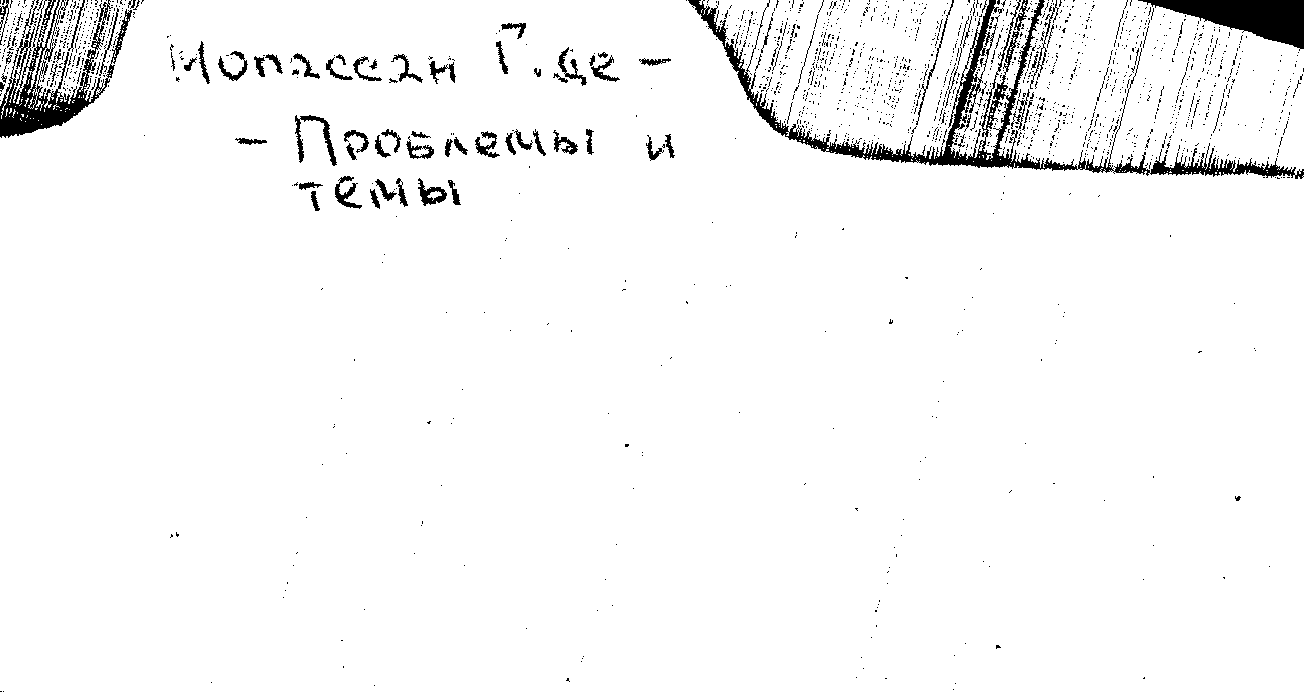 Мопассан Г. де –
– Проблемы и
темы